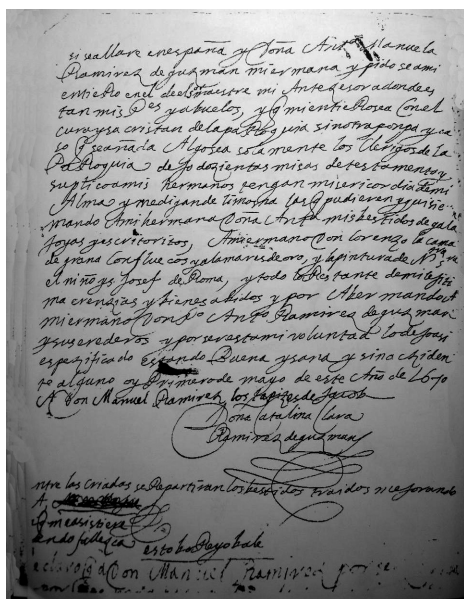 si se allare en españa y Doña Antª Manuela
Ramirez de guzman mi ermana y pido sea mi
entierro en el del maestre mi Antezesor adonde es
tan mis Pes y abuelos, y q mi entierro sea con el
cura y sacristan de la parroquia sin otra ponpa y ca
so q se aria Algo sea solamente los clerigos de la
Parroquia dejo dozientas misas de testamento y
suplico a mis hermanos tengan misericordia de mi
Alma y me digan de limosna las q pudieren y quisie
mando A mi hermana Dona Antª mis bestidos de gala
Joyas y escritorios, A mi ermano Don Lorenzo la cama
de grana con flue cos y alamares de oro, y la pintura de Nª
el niño y s Josef de Roma, y todo lo Restante de mi lejiti
ma erenzias y bienes abidos y por Aber mando A
mi ermano Don Pº Antº Ramirez de guzman
y sus erederos y por ser esta mi voluntad lo dejo asi
espezificado estando Buena y sana y sin acziden
te alguno oy Primero de mayo de este Año de 1670
A Don Manuel Ramirez los tapizes de Jacob
Dona Catalina Clara
Ramirez de guzman
ntre las criadas se Repartiran los bestidos traidos
A
q me asistiere
endo fallezca
esto bo Reyo bale
Don Manuel Ramirez por